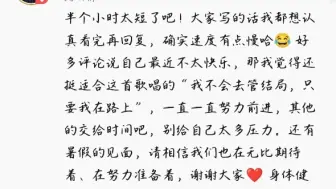 半个小时太短了吧！大家写的话我都想认
真看完再回复，确实速度有点慢哈😂 好
多评论说自己最近不太快乐，那我觉得还
挺适合这首歌唱的“我不会去管结局，只
要我在路上”，一直一直努力前进，其他
的交给时间吧，别给自己太多压力。还有
暑假的见面，请相信我们也在无比期待
着、在努力准备着，谢谢大家❤️ 身体健